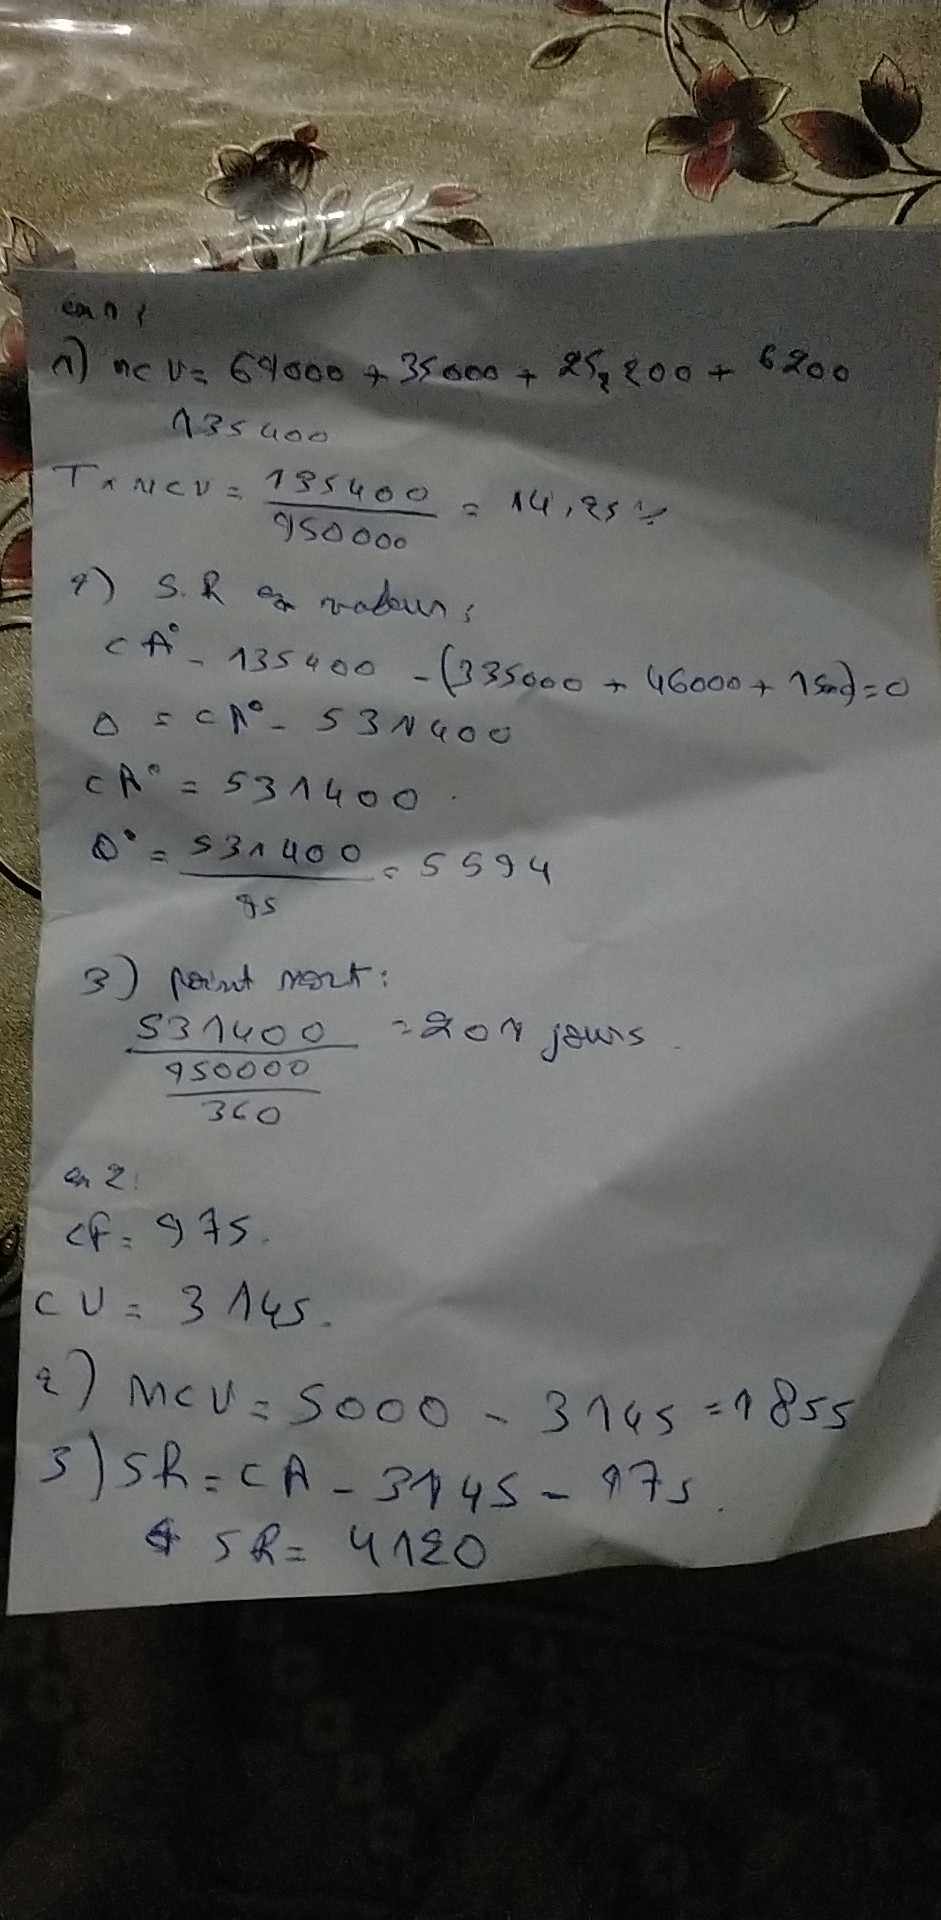 ex 1 :
1) MCV = 69000 + 35000 + 25,200 + 6200
135400
T x MCV = 135400 / 950000 = 14,25 %
2) S.R en valeur :
CA° - 135400 - (335000 + 46000 + 15000) = 0
0 = CA° - 531400
CA° = 531400.
Q° = 531400 / 95 = 5594
3) point mort :
531400 / 950000 / 360 = 201 jours.
ex 2 :
CF = 975.
CV = 3145.
2) MCV = 5000 - 3145 = 1855
3) SR = CA - 3145 - 975.
SR = 4120